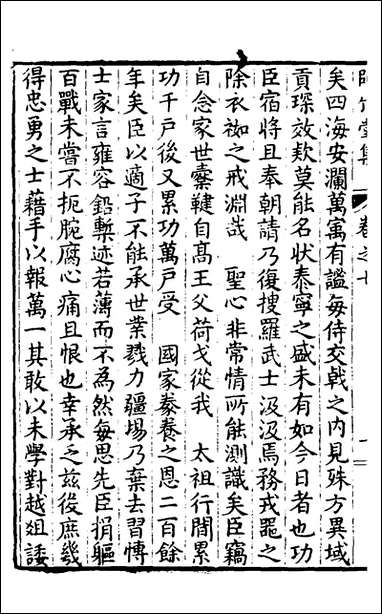 師竹堂集 卷之七 一
矣四海安瀾萬寓有謐每侍交戟之內見殊方異域
貢琛效欵莫能名狀泰寧之盛未有如今日者也功
臣宿將且奉朝請乃復搜羅武士汲汲焉務戎噐之
除衣袽之戒淵哉 聖心非常情所能測識矣臣竊
自念家世櫜鞬自高王父荷戈從我 太祖行間累
功千戸後又累功萬戸受 國家豢養之恩二百餘
年矣臣以適子不能承世業戮力疆埸乃棄去習博
士家言雍容鉛槧迹若薄而不為然每思先臣捐軀
百戰未嘗不扼腕腐心痛且恨也幸承乏茲後庶幾
得忠勇之士藉手以報萬一其敢以未學對越俎諉